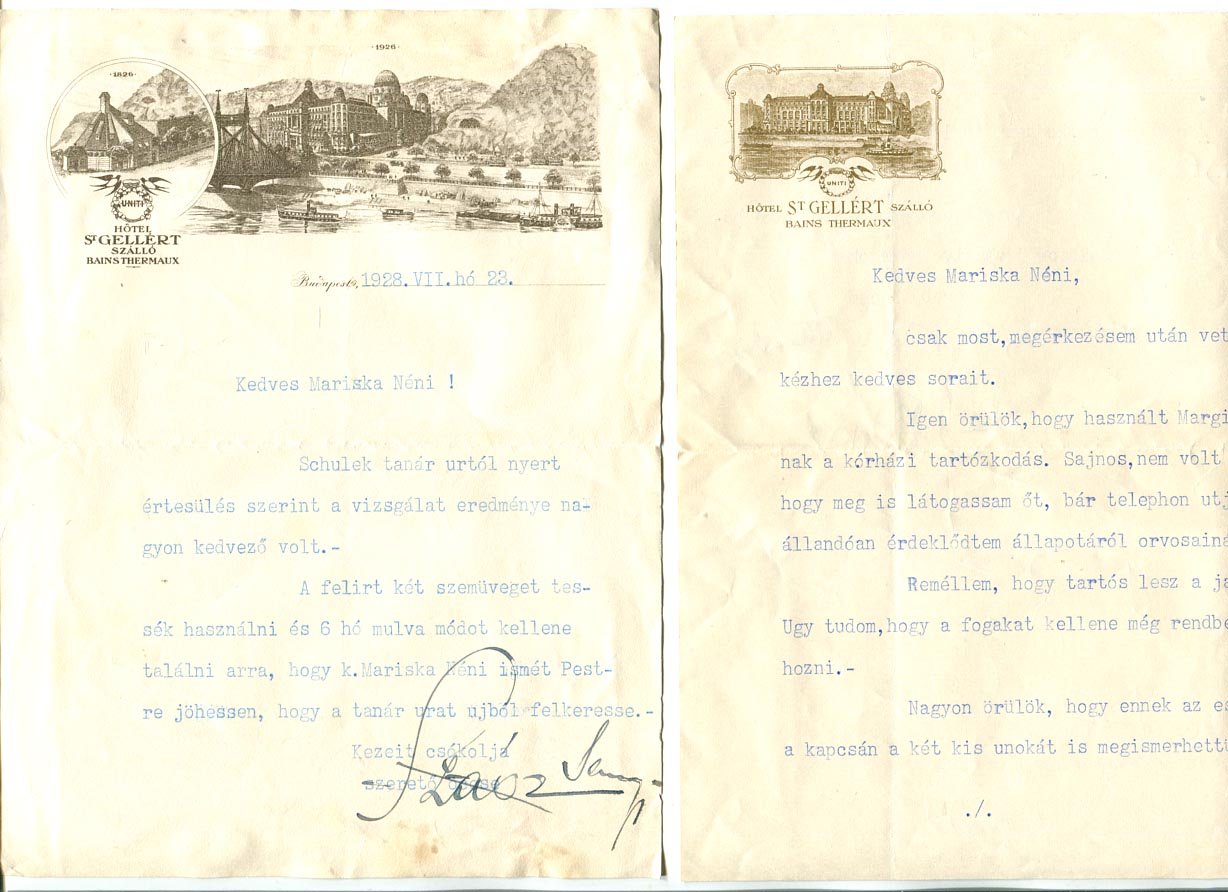 ·1826·
·1926·
UNITI
HÔTEL
ST GELLÉRT
SZÁLLÓ
BAINS THERMAUX
Budapest, 1928.VII.hó 23.
Kedves Mariska Néni !
Schulek tanár urtól nyert
értesülés szerint a vizsgálat eredménye na-
gyon kedvező volt.-
A felirt két szemüveget tes-
sék használni és 6 hó mulva módot kellene
találni arra, hogy k.Mariska Néni ismét Pest-
re jöhessen, hogy a tanár urat ujból felkeresse.-
Kezeit csókolja
szerető öcsse
UNITI
HÔTEL ST GELLÉRT SZÁLLÓ
BAINS THERMAUX
Kedves Mariska Néni,
csak most,megérkezésem után vet
kézhez kedves sorait.
Igen örülök,hogy használt Margi
nak a kórházi tartózkodás. Sajnos,nem volt
hogy meg is látogassam őt, bár telephon utj
állandóan érdeklődtem állapotáról orvosainá
Reméllem, hogy tartós lesz a ja
Ugy tudom,hogy a fogakat kellene még rendbe
hozni.-
Nagyon örülök, hogy ennek az es
a kapcsán a két kis unokát is megismerhettü
./.